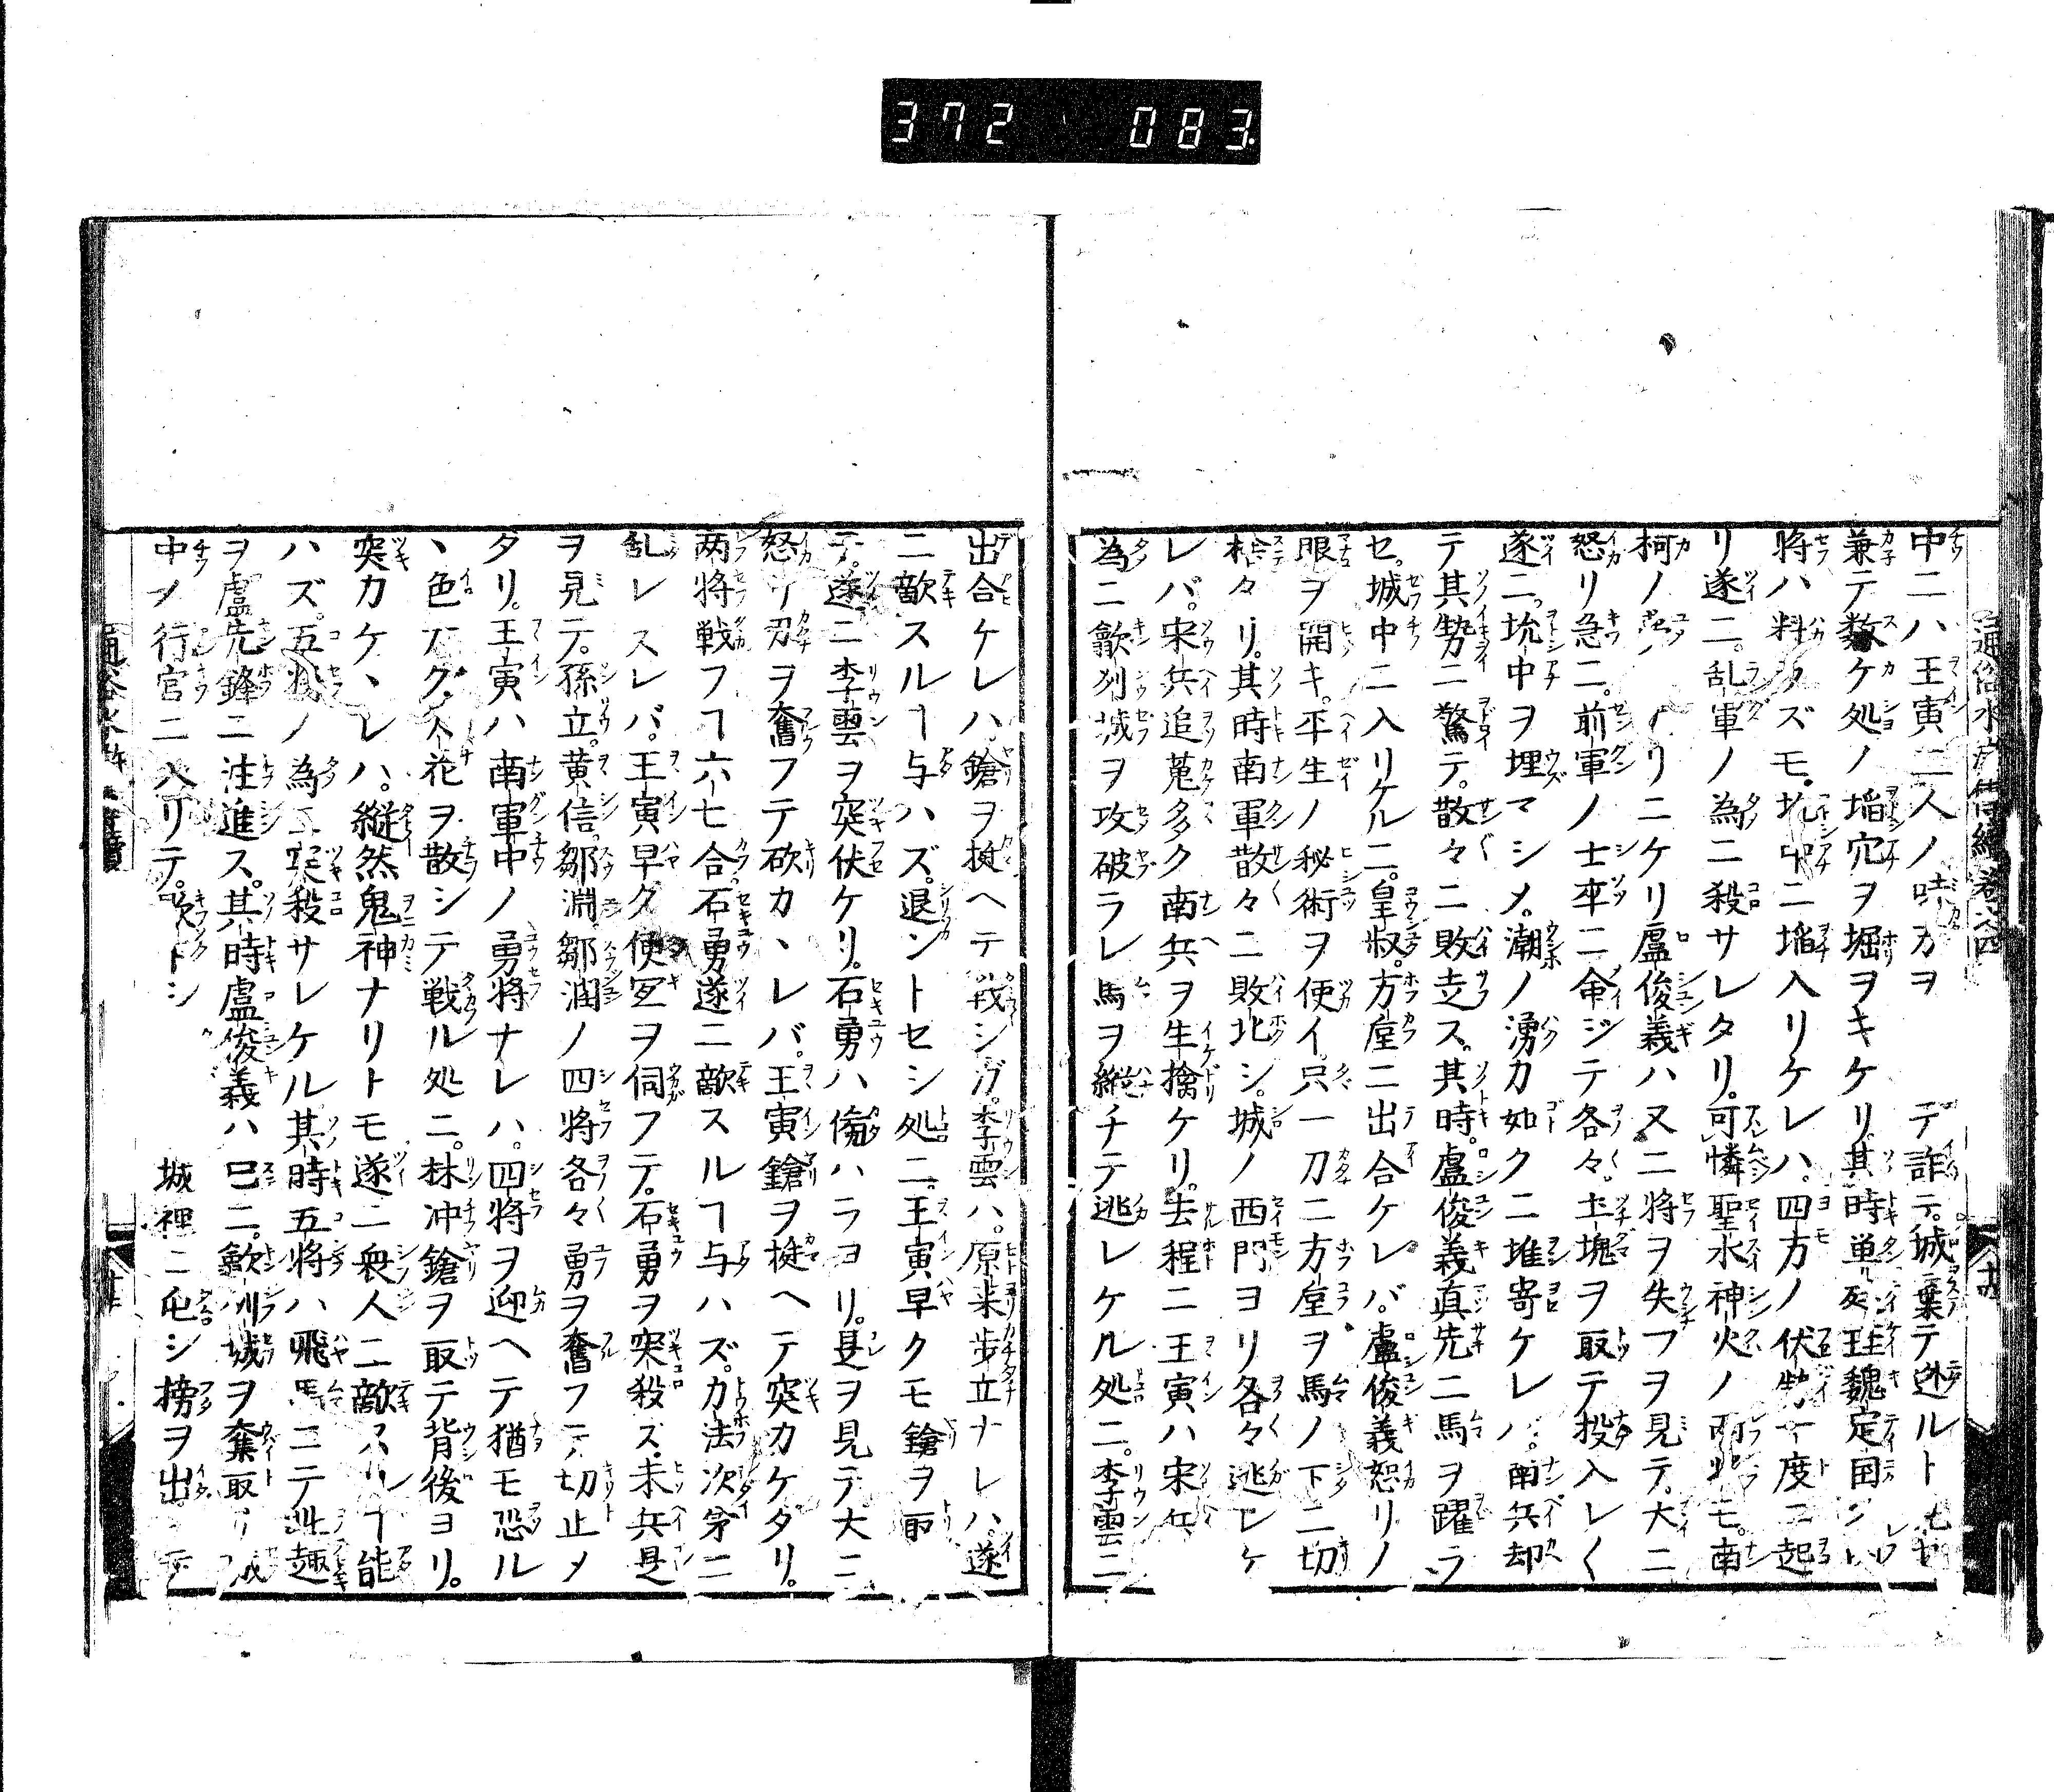 372 083
中ニハ王寅二人ノ カヲ デ詐テ城ヲ棄テ逃ルト
兼テ数ケ処ノ堦穴ヲ堀ヲキケリ其時単 廷珪魏定国
将ハ料ラズモ坑中ニ堦入リケレハ四方ノ伏勢一度ニ起
リ遂ニ乱軍ノ為ニ殺サレタリ可憐聖水神火ノ両将モ南
柯ノ リニケリ盧俊義ハ又二将ヲ失フヲ見テ大ニ
怒リ急ニ前軍ノ士卒ニ命ジテ各々土塊ヲ取テ投入レ〱
遂ニ坑中ヲ埋マシメ潮ノ湧カ如クニ推寄ケレハ南兵却
テ其勢ニ驚テ散々ニ敗走ス其時盧俊義真先ニ馬ヲ躍ラ
セ城中ニ入リケルニ皇叔方垕ニ出合ケレバ盧俊義怒リノ
眼ヲ開キ平生ノ秘術ヲ使イ只一刀ニ方垕ヲ馬ノ下ニ切
捨タリ其時南軍散々ニ敗北シ城ノ西門ヨリ各々逃レケ
レバ宋兵追蒐多ク南兵ヲ生擒ケリ去程ニ王寅ハ宋兵
為ニ歙州城ヲ攻破ラレ馬ヲ縦チテ逃レケル処ニ李雲ニ
出合ケレハ鎗ヲ挺ヘテ戦シガ李雲ハ原来歩立ナレハ遂
ニ敵スルヿ与ハズ退ントセシ処ニ王寅早クモ鎗ヲ取
テ遂ニ李雲ヲ突伏ケリ石勇ハ傷ハラヨリ是ヲ見テ大ニ
怒リ刃ヲ奮フテ砍カヽレバ王寅鎗ヲ挺ヘテ突カケタリ
両将戦フヿ六七合石勇遂ニ敵スルヿ与ハズ力法次第ニ
乱レスレバ王寅早ク便宜ヲ伺フテ石勇ヲ突殺ス宋兵是
ヲ見テ孫立黄信鄒淵鄒潤ノ四将各々勇ヲ奮フテ切止メ
タリ王寅ハ南軍中ノ勇将ナレハ四将ヲ迎ヘテ猶モ恐ル
ヽ色ナク火花ヲ散シテ戦ル処ニ林冲鎗ヲ取テ背後ヨリ
突カケヽレハ縦然鬼神ナリトモ遂ニ衆人ニ敵スルヿ能
ハズ五将ノ為ニ突殺サレケル其時五将ハ飛馬ニテ此趣
ヲ盧先鋒ニ注進ス其時盧俊義ハ已ニ歙州城ヲ奪取リ城
中ノ行宮ニ入リテ トシ 城裡ニ屯シ榜ヲ出 テ